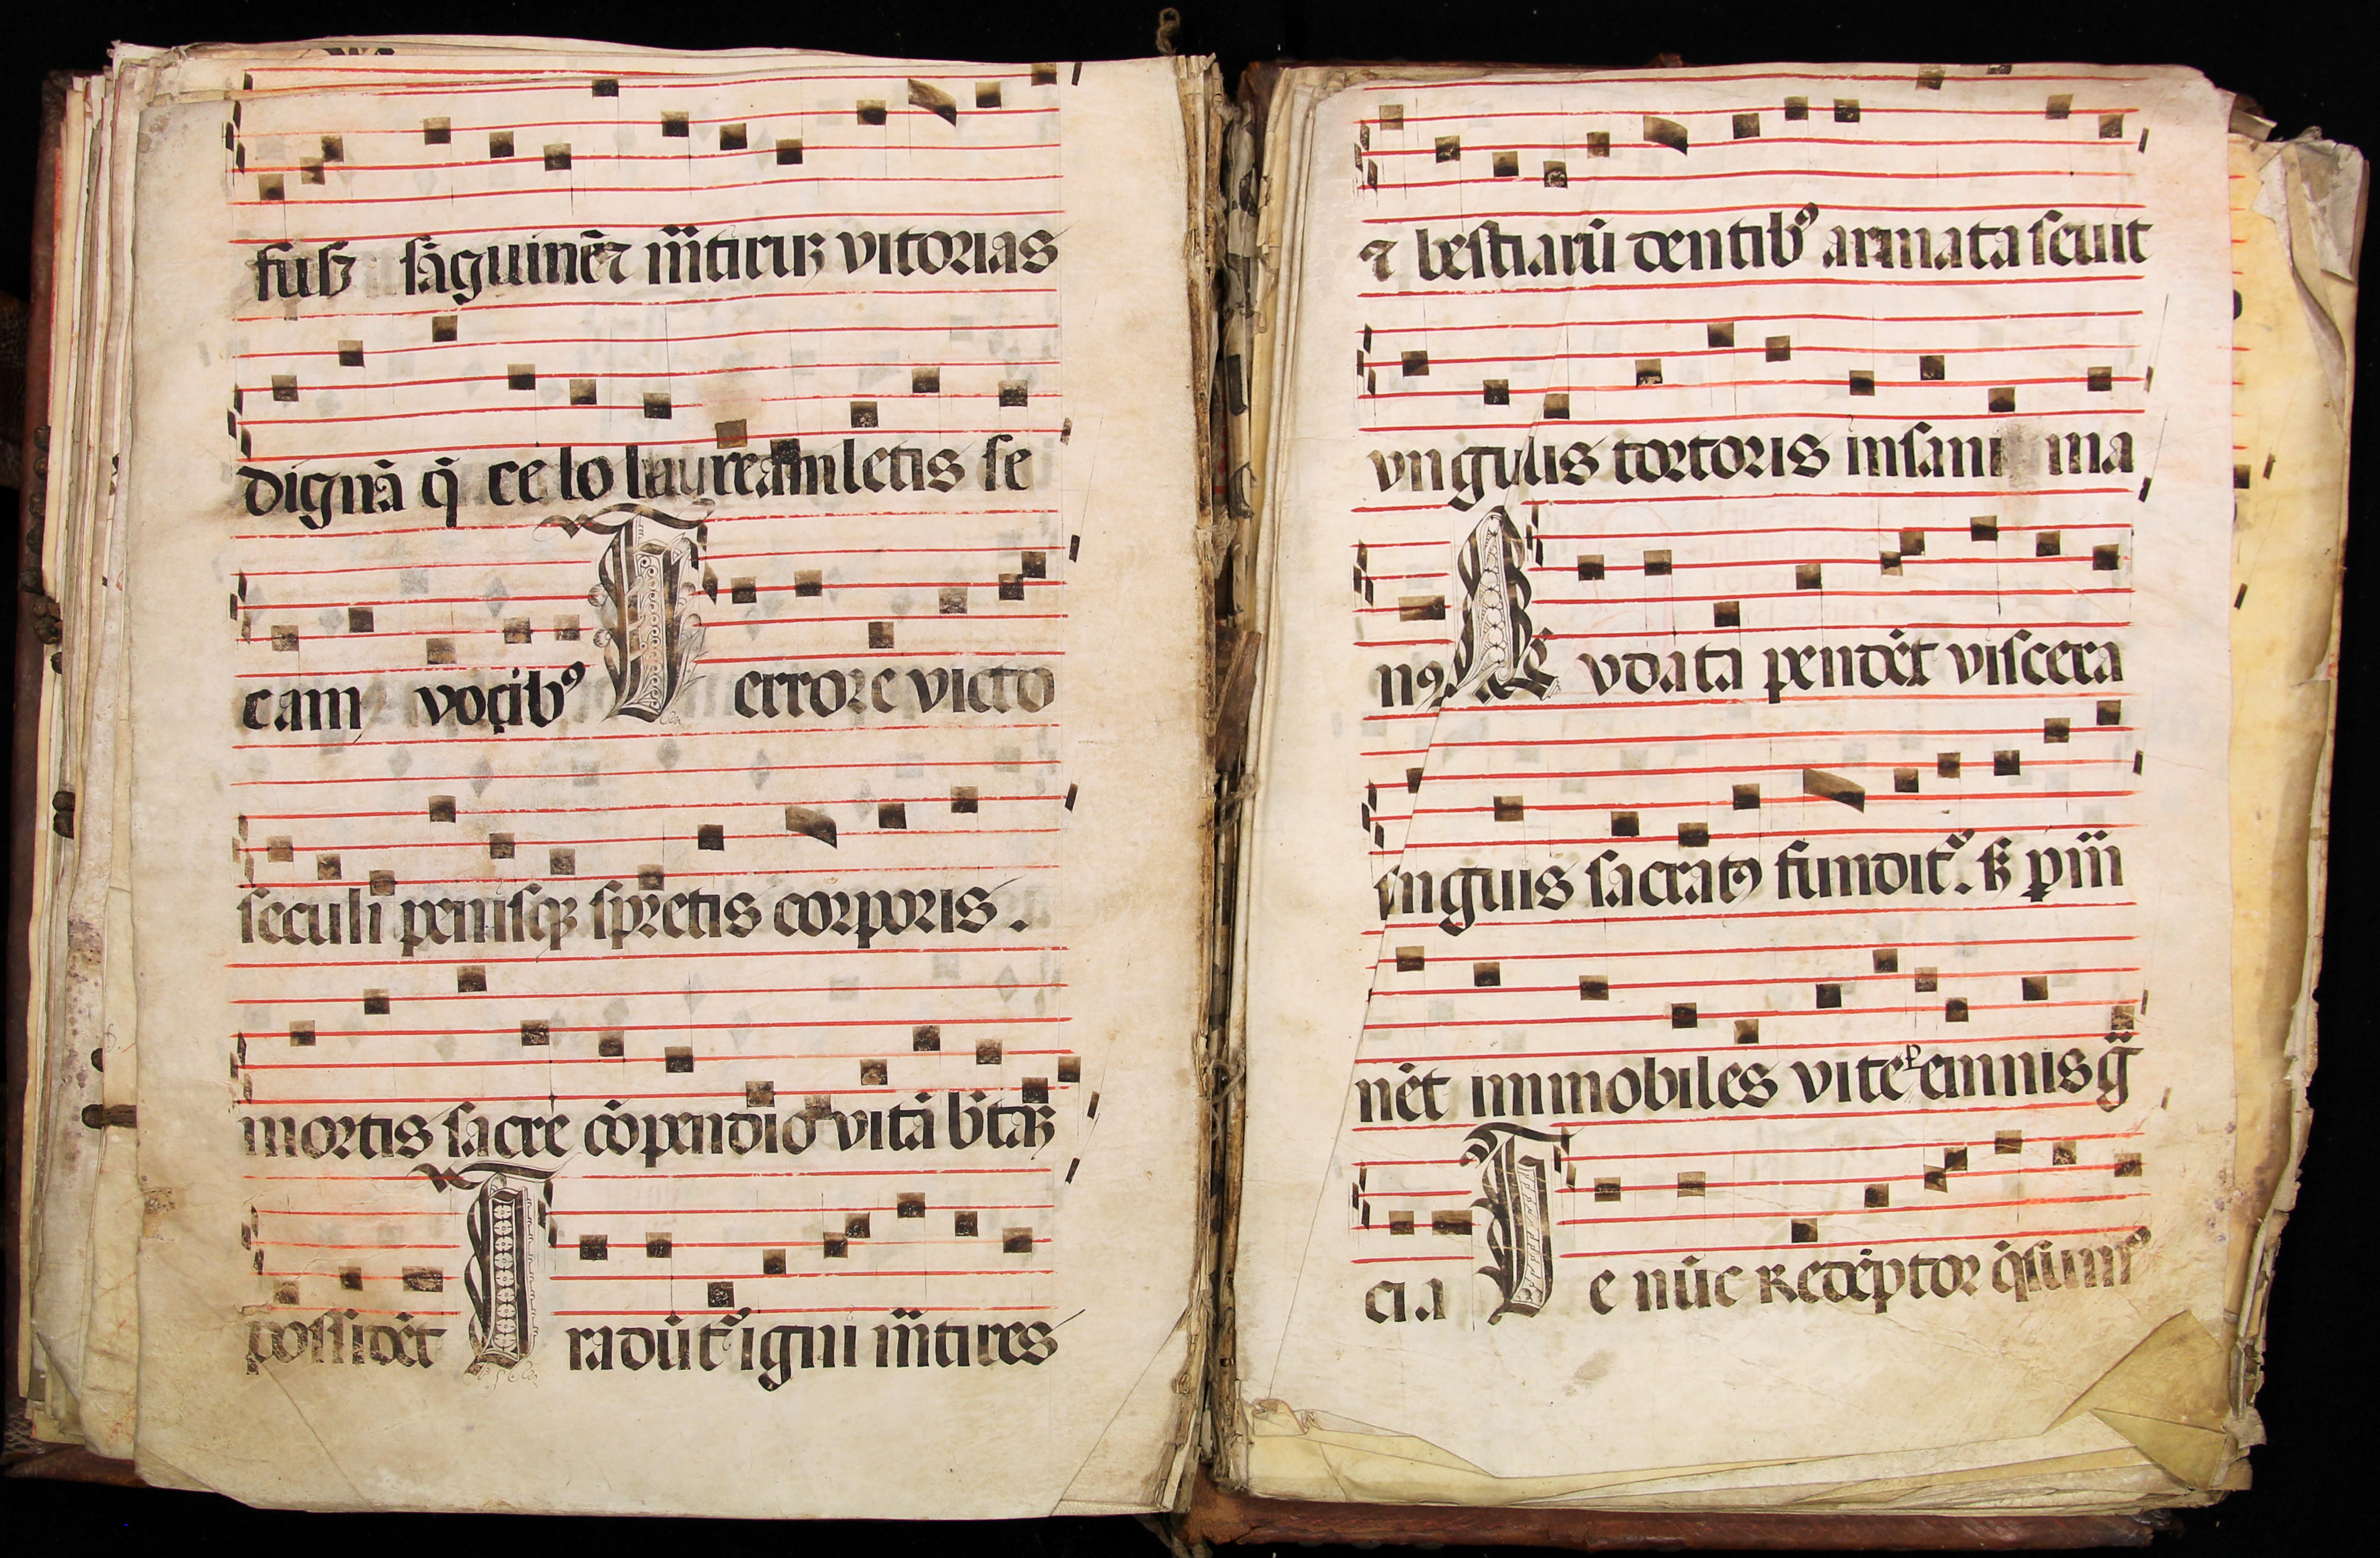 fusꝫ sāguinē ⁊ m̄tirū vitorias
dignā q̄ celo lauream letis se
cam vocib⁹ T errore victo
seculi penisqꝫ spretis corporis.
mortis sacre cōpendio vitā b̄tā
possidēt T radūt᷑ igni m̄tires
⁊ bestiarū dentib⁹ armata seuit
vngulis tortoris insani ma
n⁹. N vdata pendēt viscera
sanguis sacrat⁹ fundit᷑. sꝫ ꝑm̄
nēt immobiles vite ꝑennis g̃
cia T e nūc Redēptor q̄sum⁹